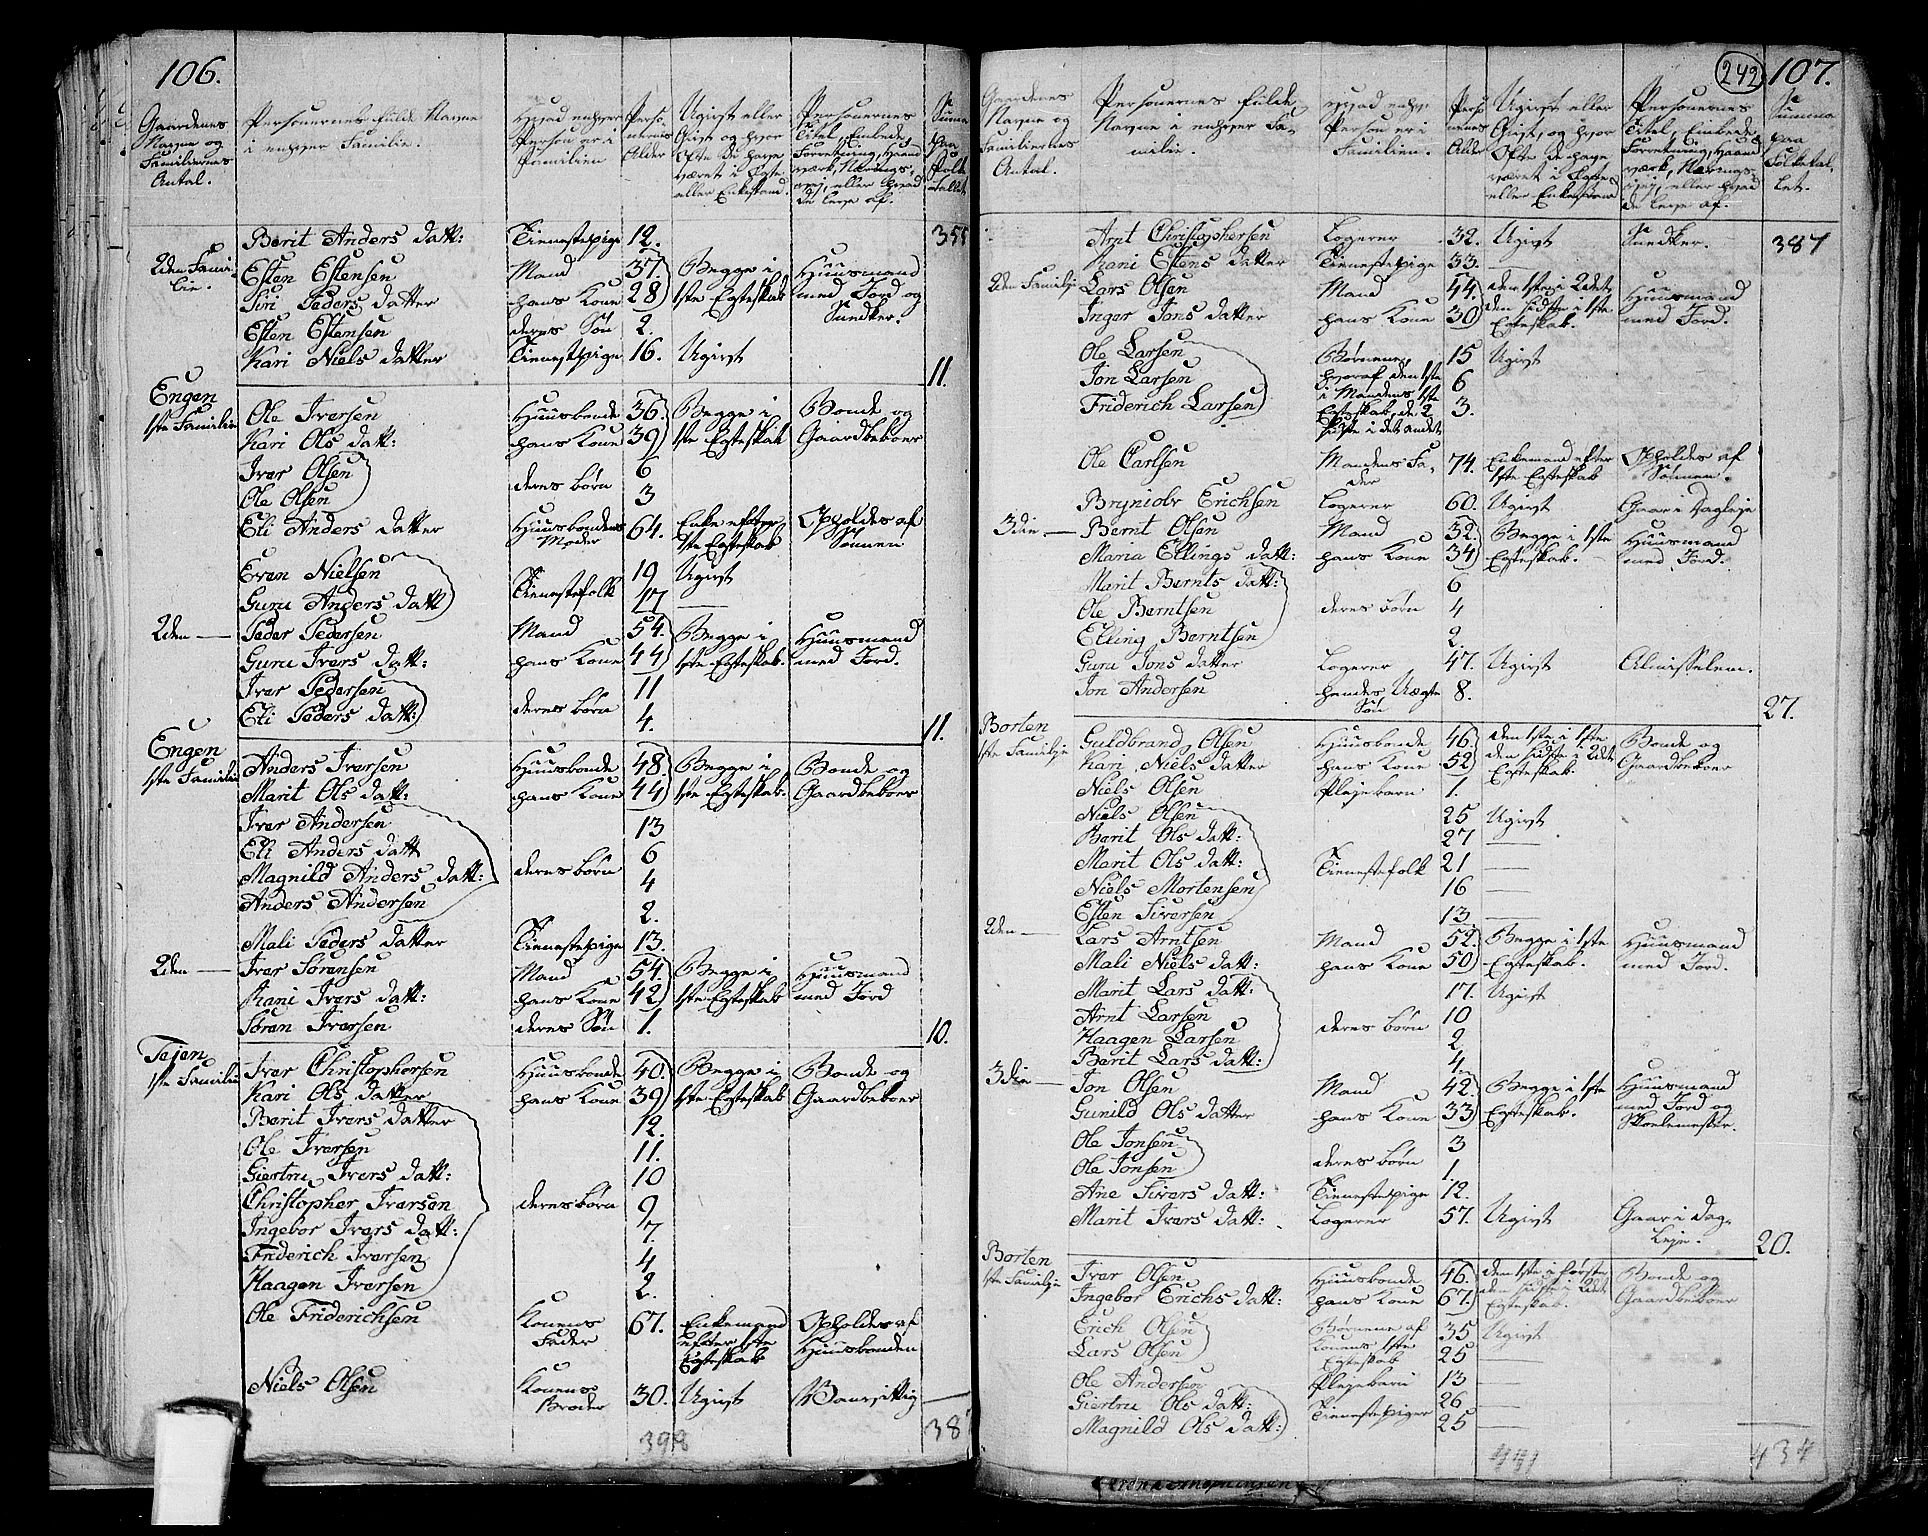 106.
Gaardenes Navne og Familiernes Antal.
Personernes fulde Navne i enhver Familie.
Hvad enhver Person er i Familien
Personernes Alder
Ugivt eller Givt og hvor Ofte De have været i Egteskab eller Enkestand.
Personernes Titel, Embede, Forretning, Haandværk, Nærings-vej, eller hvad de leve af.
Summa paa Folketallet
Berit Anders datt: Tienestepige 12. 355
2den Familie. Esten Estensen Mand 37. Begge i 1ste Egteskab Huusmand med Jord og Snedker.
Siri Peders datter hans Kone 28
Esten Estensen deres Søn 2.
Kari Niels datter Tienestpige 16. Ugivt
11.
Engen 1ste Familie Ole Iversen Huusbonde 36. Begge i 1ste Egteskab Bonde og Gaardbeboer
Kari Ols datt: hans Kone 39
Iver Olsen deres børn 6
Ole Olsen 3
Eli Anders datter Huusbondens Moder 64. Enke efter 1ste Egteskab Opholdes af Sønnen
Even Nielsen Tienestefolk 19 Ugivt
Guru Anders datt 47 —
2den — Peder Pedersen Mand 54. Begge i 1ste Egteskab. Huusmand med Jord.
Guru Ivers datt: hans Kone 44
Iver Pedersen deres børn 11
Eli Peders datt: 4.
11.
Engen 1ste Familie Anders Iversen Huusbonde 48. Begge i 1ste Egteskab. Bonde og Gaardbeboer
Marit Ols datt: hans Kone 44
Iver Andersen 13
Eli Anders datt 6
Magnild Anders datt: deres børn 4
Anders Andersen 2.
Mali Peders datter Tienestepige 13.
2den — Iver Sørensen Mand 54. Begge i 1ste Egteskab Huusmand med Jord
Rani Ivers datt: hans Kone 42
Søren Iversen deres Søn 1.
10.
Teien 1ste Familie Iver Christophersen Huusbonde 40. Begge i 1ste Egteskab Bonde og Gaardbeboer
Kari Ols datter hans Kone 39
Berit Ivers datter 12.
Ole Iversen 11.
Giertru Ivers datt: 10
Christopher Iversen deres børn 9
Ingebor Ivers datt: 7.
Friderich Iversen 4
Haagen Iversen 2.
Ole Friderichsen Konens Fader 67. Enkemand efter 1ste Egteskab Opholdes af Huusbonden
Niels Olsen Konens Broder 30. Ugivt Vanvittig
398
38
249
107.
Gaardenes Navne og Familiernes Antal.
Personernes fulde Navne i enhver Familie.
Hvad enhver Person er i Familien.
Personernes Alder
Ugivt eller Givt, og hvor Ofte de have været i Egteskab eller Enkestand
Personernes Titel, Embede Forretning, Haandværk, Nærings-vej, eller hvad de leve af.
Summa paa Folketallet.
Arnt Christophersen Logerer 32. Ugivt Snedker. 387
Rani Estens datter Tienestepige 33. —
2den Familje Lars Olsen Mand 44. den 1ste i 2det den sidste i 1ste Egteskab. Huusmand med Jord.
Inger Jons datter hans Kone 30
Ole Larsen Børnene, hvoraf den 1ste i Mandens 1ste Egteskab, de 2 sidste i det andet 15 Ugivt
Jon Larsen 6
Friderich Larsen 3.
Ole Carlsen Mandens Fader 74. Enkemand efter 1ste Egteskab Opholdes af Sønnen.
Bryniolv Erichsen Logerer 60. Ugivt Gaar i Dagleje
3die — Bernt Olsen Mand 32. Begge i 1ste Egteskab. Huusmand med Jord.
Maria Ellings datt: hans Kone 34
Marit Bernts datt: 6
Ole Berntsen deres børn 4
Elling Berntsen 2.
Guru Jons datter Logerer 47. Ugivt Almisselem.
Jon Andersen hendes Uægte Søn 8.
27.
Borten 1ste Familje Guldbrand Olsen Huusbonde 46. den 1ste i 1ste den sidste i 2det Egteskab. Bonde og Gaardbeboer
Kari Niels datter hans Kone 52
Niels Olsen Plejebarn 1.
Niels Olsen 25 Ugivt
Berit Ols datt: 27 —
Marit Ols datt: Tienestefolk 21 —
Niels Mortensen 16 —
Esten Siversen 13 —
2den — Lars Arntsen Mand 52. Begge i 1ste Egteskab. Huusmand med Jord.
Mali Niels datt: hans Kone 50
Marit Lars datt: 17. Ugivt
Arnt Larsen 10
Haagen Larsen deres børn 2
Berit Lars datt: 4.
3die — Jon Olsen Mand 42. Begge i 1ste Egteskab. Huusmand med Jord og Skolemester.
Gunild Ols datter hans Kone 33
Ole Jonsen deres børn 3
Ole Jonsen 1.
Ane Sivers datt: Tienestepige 12.
Marit Ivers datt: Logerer 57. Ugivt Gaar i Dagleje.
20.
Borten 1ste Familje Iver Olsen Huusbonde 46. den 1ste i første den sidste i 2det Egteskab. Bonde og Gaardbeboer
Ingebor Erichs datt: hans Kone 67.
Erich Olsen Børnene af Konens 1ste Egteskab 35 Ugivt
Lars Olsen 25 —
Ole Andersen Plejebarn 13 —
Giertru Ols datt: Tienestepiger 26 —
Magnild Ols datt: 25 —
441
434